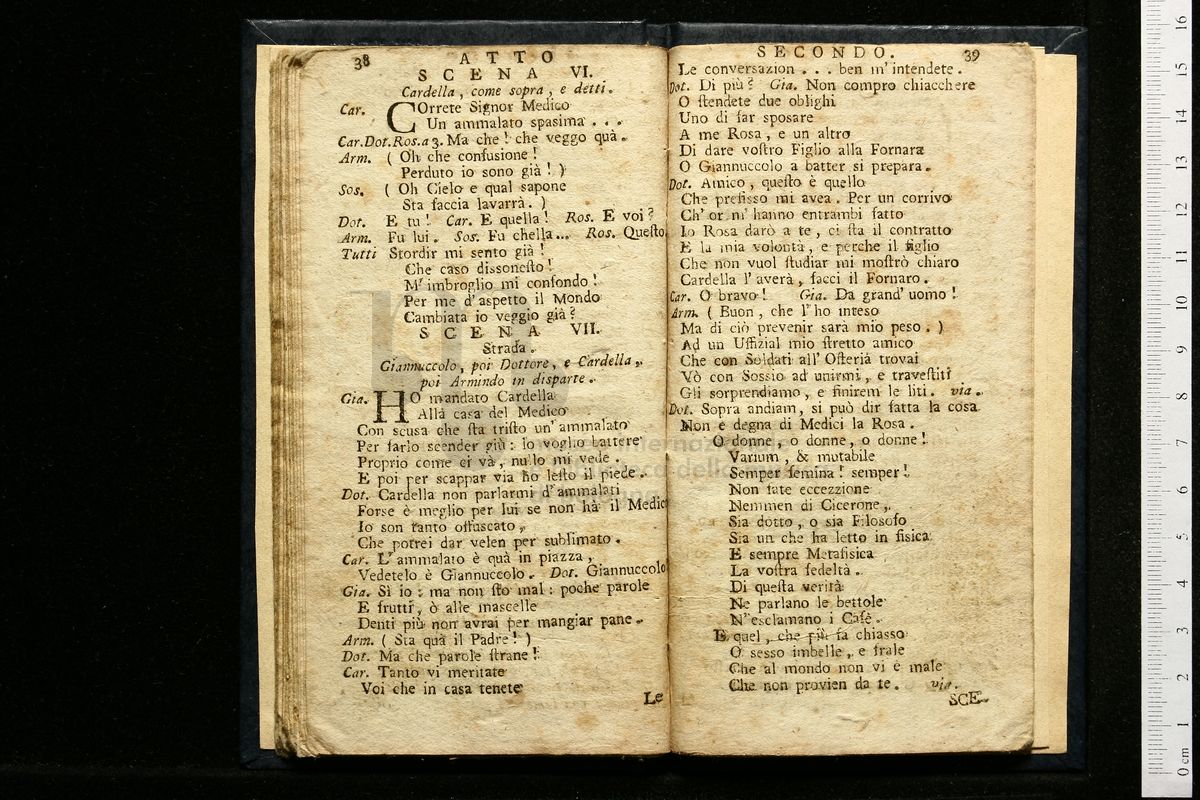 38 ATTO
SCENA VI.
Cardella, come sopra, e detti.
Car. COrrete Signor Medico
Un ammalato spasima . . .
Car.Dot.Ros.a 3. Ma che! che veggo quà.
Arm. ( Oh che confusione!
Perduto io sono già! )
Sos. ( Oh Cielo e qual sapone
Sta faccia lavarrà. )
Dot. E tu! Car. E quella! Ros. E voi?
Arm. Fu lui. Sos. Fu chella... Ros. Questo
Tutti Stordir mi sento già!
Che caso dissonesto!
M' imbroglio mi confondo!
Per me d'aspetto il Mondo
Cambiata io veggio già?
SCENA VII.
Strada.
Giannuccolo, poi Dottore, e Cardella,
poi Armindo in disparte.
Gia. HO mandato Cardella
Alla casa del Medico
Con scusa che sta tristo un' ammalato
Per farlo scender giù: lo voglio battere
Proprio come ei và, nullo mi vede.
E poi per scappar via ho lesto il piede.
Dot. Cardella non parlarmi d'ammalati
Forse è meglio per lui se non hà il Medico
Io son tanto offuscato,
Che potrei dar velen per sublimato.
Car. L' ammalato è quà in piazza,
Vedetelo è Giannuccolo. Dot. Giannuccolo
Gia. Sì io: ma non sto mal: poche parole
E frutti, ò alle mascelle
Denti più non avrai per mangiar pane.
Arm. ( Sta quà il Padre! )
Dot. Ma che parole strane!
Car. Tanto vi meritate
Voi che in casa tenete
Le
SECONDO. 39
Le conversazion . . . ben m'intendete.
Dot. Di più? Gia. Non compro chiacchere
O stendete due oblighi
Uno di far sposare
A me Rosa, e un altro
Di dare vostro Figlio alla Fornara
O Giannuccolo a batter si prepara.
Dot. Amico, questo è quello
Che prefisso mi avea. Per un corrivo
Ch' or m' hanno entrambi fatto
Io Rosa darò a te, ci sta il contratto
E la mia volontà, e perche il figlio
Che non vuol studiar mi mostrò chiaro
Cardella l' averà, facci il Fornaro.
Car. O bravo! Gia. Da grand' uomo!
Arm. ( Buon, che l' ho inteso
Ma di ciò prevenir sarà mio peso. )
Ad un Uffizial mio stretto amico
Che con Soldati all' Osterià trovai
Vò con Sossio ad unirmi, e travestiti
Gli sorprendiamo, e finirem le liti. via.
Dot. Sopra andiam, si può dir fatta la cosa
Non è degna di Medici la Rosa.
O donne, o donne, o donne!
Varium, & mutabile
Semper femina! semper!
Non fate eccezzione
Nemmen di Cicerone,
Sia dotto, o sia Filosofo
Sia un che ha letto in fisica
E sempre Metafisica
La vostra fedeltà.
Di questa verità
Ne parlano le bettole
N' esclamano i Cafè.
E quel, che più fa chiasso
O sesso imbelle, e frale
Che al mondo non vi è male
Che non provien da te. via.
SCE-